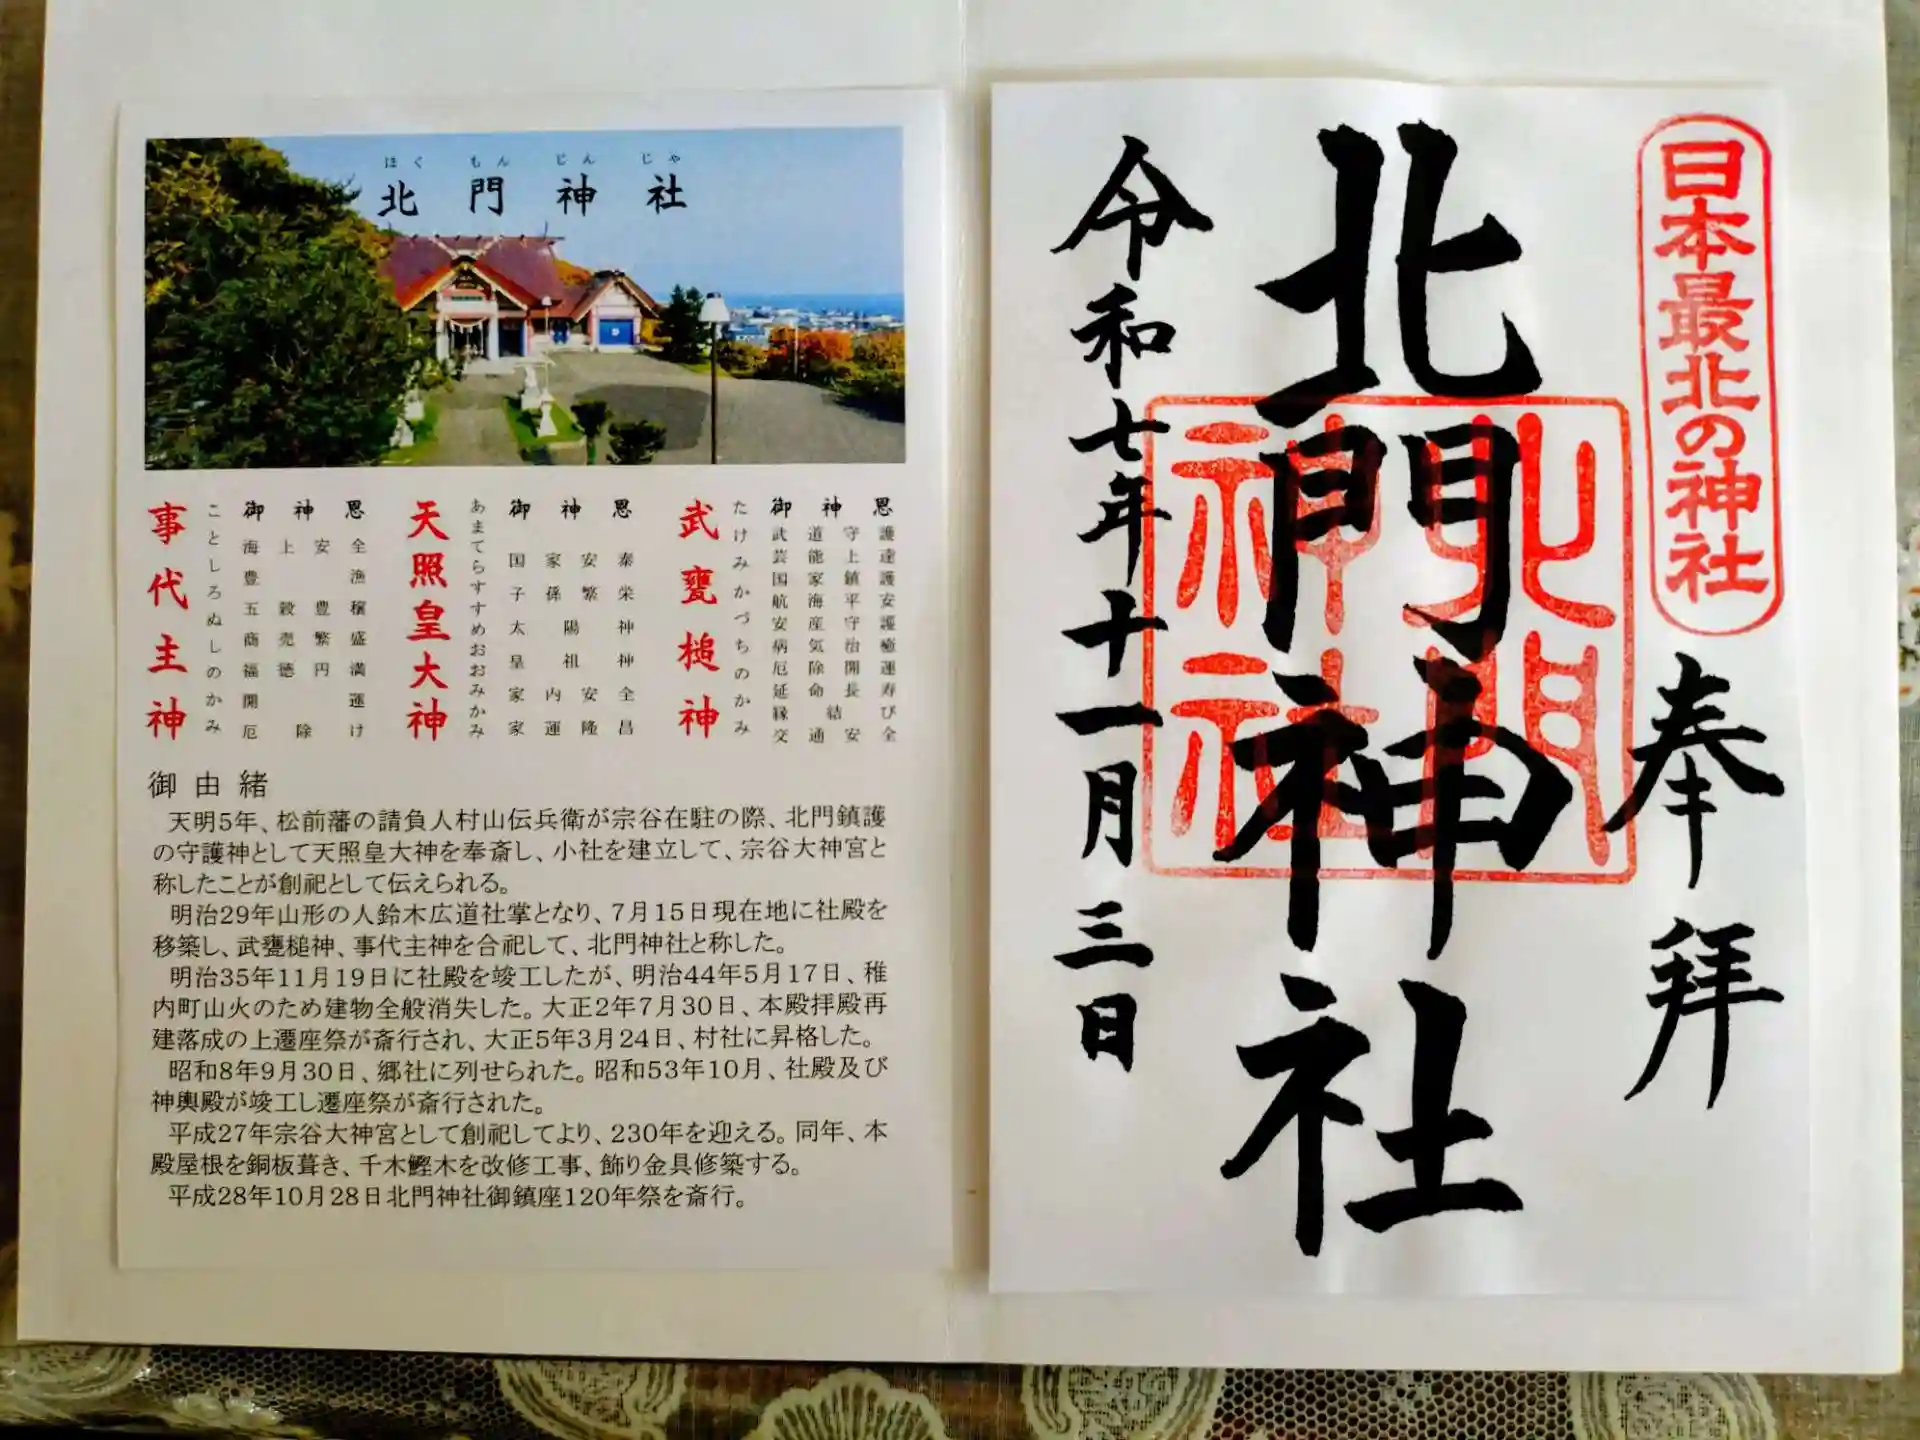 ほく もん じん じゃ
北門神社
武甕槌神
たけみかづちのかみ
御神恩
武道守護
芸能上達
国家鎮護
航海平安
安産守護
病気治癒
厄除開運
延命長寿
縁結び
交通安全
天照皇大神
あまてらすすめおおみかみ
御神恩
国家安泰
子孫繁栄
太陽神
皇祖神
家内安全
家運隆昌
事代主神
ことしろぬしのかみ
御神恩
海上安全
豊漁
五穀豊穣
商売繁盛
福徳円満
開運
厄除け
御由緒
天明5年、松前藩の請負人村山伝兵衛が宗谷在駐の際、北門鎮護
の守護神として天照皇大神を奉斎し、小社を建立して、宗谷大神宮と
称したことが創祀として伝えられる。
明治29年山形の人鈴木広道社掌となり、7月15日現在地に社殿を
移築し、武甕槌神、事代主神を合祀して、北門神社と称した。
明治35年11月19日に社殿を竣工したが、明治44年5月17日、稚
内町山火のため建物全般消失した。大正2年7月30日、本殿拝殿再
建落成の上遷座祭が斎行され、大正5年3月24日、村社に昇格した。
昭和8年9月30日、郷社に列せられた。昭和53年10月、社殿及び
神輿殿が竣工し遷座祭が斎行された。
平成27年宗谷大神宮として創祀してより、230年を迎える。同年、本
殿屋根を銅板葺き、千木鰹木を改修工事、飾り金具修築する。
平成28年10月28日北門神社御鎮座120年祭を斎行。
日本最北の神社
奉拝
北門神社
北門
神社
令和七年十一月三日